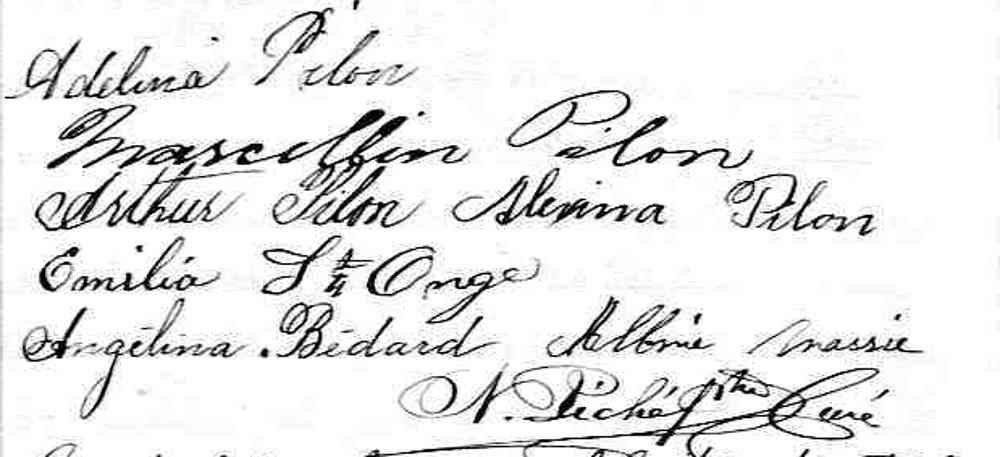 Adelina Pilon
Marcellin Pilon
Arthur Pilon Alexina Pilon
Emilia St Onge
Angélina Bédard Albine massie
N. Piché Ptre Curé